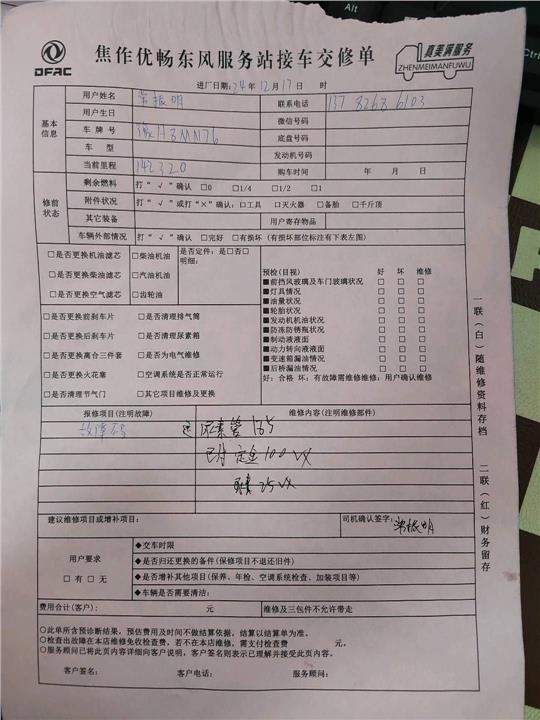 Alt
Ctrl
DFAC
焦作优畅东风服务站接车交修单
真美满服务
ZHENMEIMANFUWU
进厂日期:24年12月17日 时
基本信息
用户姓名
联系电话 137 8268 6103
用户生日
微信号码
车牌号 豫H8MN76
底盘号码
车型
发动机号码
当前里程 142320
购车时间 年 月 日
修前状态
剩余燃料 打“√”确认 □0 □1/4 □1/2 □1
附件状况 打“√”或打“×”确认:□工具 □灭火器 □备胎 □千斤顶
其它装备
用户寄存物品
车辆外部情况 打“√”确认 □完好 □有损坏(有损坏部位标注有下表左图)
□是否更换机油滤芯 □柴油机油
□是否更换柴油滤芯 □汽油机油
□是否更换空气滤芯 □齿轮油
是否定件:是□否□
明细:
□是否更换前刹车片 □是否清理排气筒
□是否更换后刹车片 □是否清理尿素箱
□是否更换离合三件套 □是否为电气维修
□是否更换火花塞 □空调系统是否正常运行
□是否清理节气门 □其它项目维修及更换
预检(目视) 好 坏 维修
■前挡风玻璃及车门玻璃状况 □ □ □
■灯具情况 □ □ □
■油量状况 □ □ □
■轮胎状况 □ □ □
■发动机机油状况 □ □ □
■防冻防锈瓶状况 □ □ □
■制动液液面 □ □ □
■动力转向液液面 □ □ □
■变速箱漏油情况 □ □ □
■后桥漏油情况 □ □ □
好:合格 坏:有故障需维修维修:用户确认维修
报修项目(注明故障)
维修内容(注明维修部件)
故障码
尿素管 165
已付定金100 VX
25 VX
建议维修项目或增补项目:
司机确认签字:
用户要求
□有 □无
◆交车时限
◆是否归还更换的备件(保修项目不退还旧件)
◆是否增补其他项目(保养、年检、空调系统检查、加装项目等)
◆车辆是否需要清洁:
费用合计(客户): 元
维修及三包件不允许带走
○此单所含预诊断结果,预估费用及时间不做结算依据,结算以结算单为准。
○检查出故障在本店维修免收检查费,若不在本店维修,需支付检查费 元。
○服务顾问已将此页内容详细向客户说明,客户签名则表示已理解并接受此页内容。
客户签名: 客户电话: 服务顾问:
一联(白)随维修资料存档
二联(红)财务留存